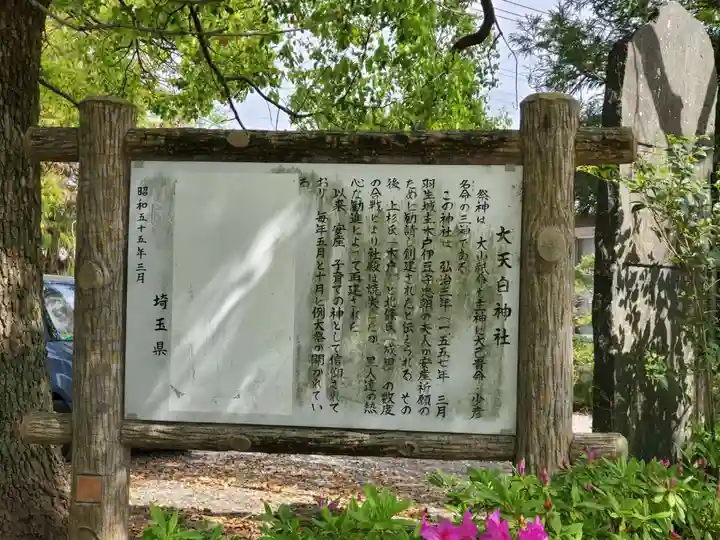 大天白神社
祭神は、大山祇命を主神に大己貴命、少彦
名命の三神である。
この神社は、弘治三年(一五五七年)三月
羽生城主木戸伊豆守忠朝の夫人が安産祈願の
ために勧請し創建されたと伝えられる。その
後、上杉氏(木戸)と北條氏(成田)の数度
の合戦により社殿は焼失したが、里人達の熱
心な勧進によって再建された。
以来、安産、子育ての神として信仰されて
おり、毎年五月と十月に例大祭が開かれてい
る。
昭和五十五年三月
埼玉県